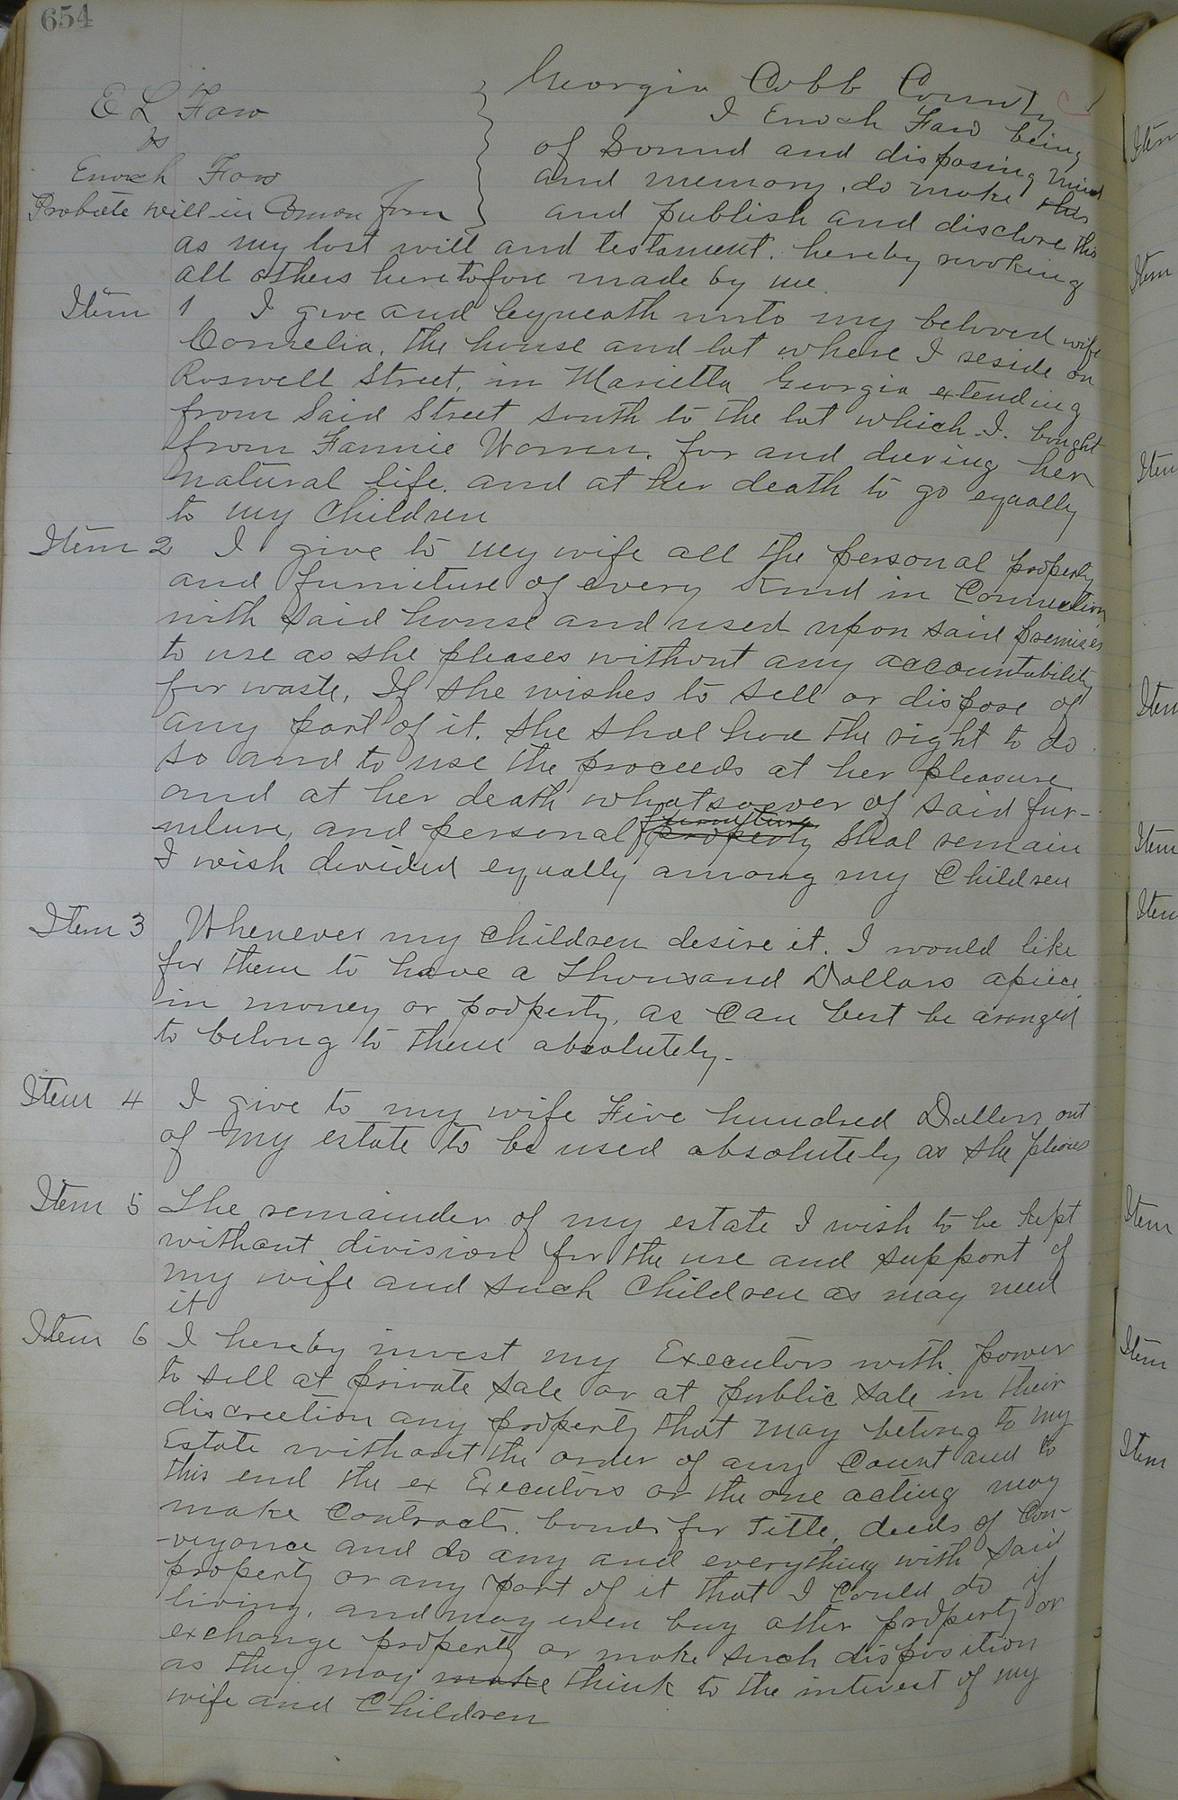 654
Georgia Cobb County
E L Faw
vs
Enoch Faw
Probate will in Comon form
I Enoch Faw being
of Sound and disposing mind
and memory, do make this
and publish and disclore this
as my last will and testament. hereby revoking
all others heretofore made by me.
Item 1 I give and beqneath unto my beloved wife
Cornelia, the house and lot where I reside on
Roswell Street, in Marietta Georgia extending
from Said Street south to the lot which I. bought
from Fannie Warren, for and dureing her
natural life. and at her death to go equally
to my Children
Item 2 I give to my wife all the personal property
and furniture of every Kind in Connection
with said house and used upon said premises
to use as she pleases without any accountability
for waste, If she wishes to sell or dispose of
any part of it. she shal have the right to do
so and to use the proceeds at her pleasure
and at her death whatsoever of said fur-
niture, and personal furniture property shal remain
I wish divided equally among my Children
Item 3 Whenever my children desire it. I would like
for them to have a Thousand Dollars apiece
in money or podperty, as Can best be aranged
to belong to them absolutely-
Item 4 I give to my wife Five hundred Dollers out
of my estate to be used absolutely as she pleases
Item 5 The remainder of my estate I wish to be kept
without division for the use and support of
my wife and such Children as may need
it
Item 6 I hereby invest my Executors with power
to sell at private sale or at public sale in their
discreetion any property that may belong to my
Estate without the order of any Court and to
this end the ex Executors or the one acting may
make Contracts. bonds for Title, deeds of Con-
-veyance and do any and everything with said
property or any part of it that I Could do if
living, and may even buy other property or
exchange property or make such disposition
as they may make think to the interest of my
wife and Children
Item
Item
Item
Item
Item
Item
Item
Item
Item